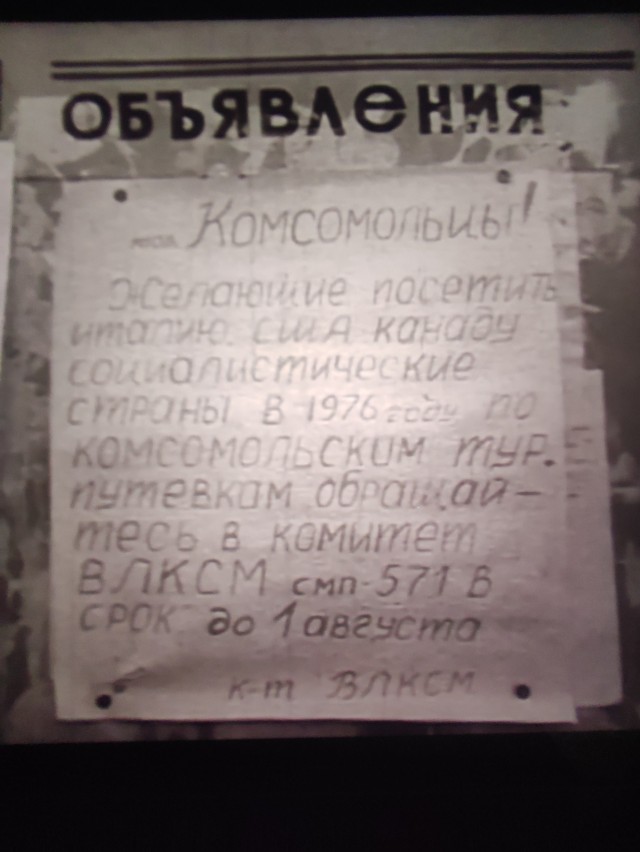 ОБЪЯВЛЕНИЯ
Комсомольцы!
Желающие посетить
италию. США канаду
социалистические
страны в 1976 году по
комсомольским тур.
путевкам обращай-
тесь в комитет
ВЛКСМ смп-571 в
срок до 1 августа
к-т ВЛКСМ